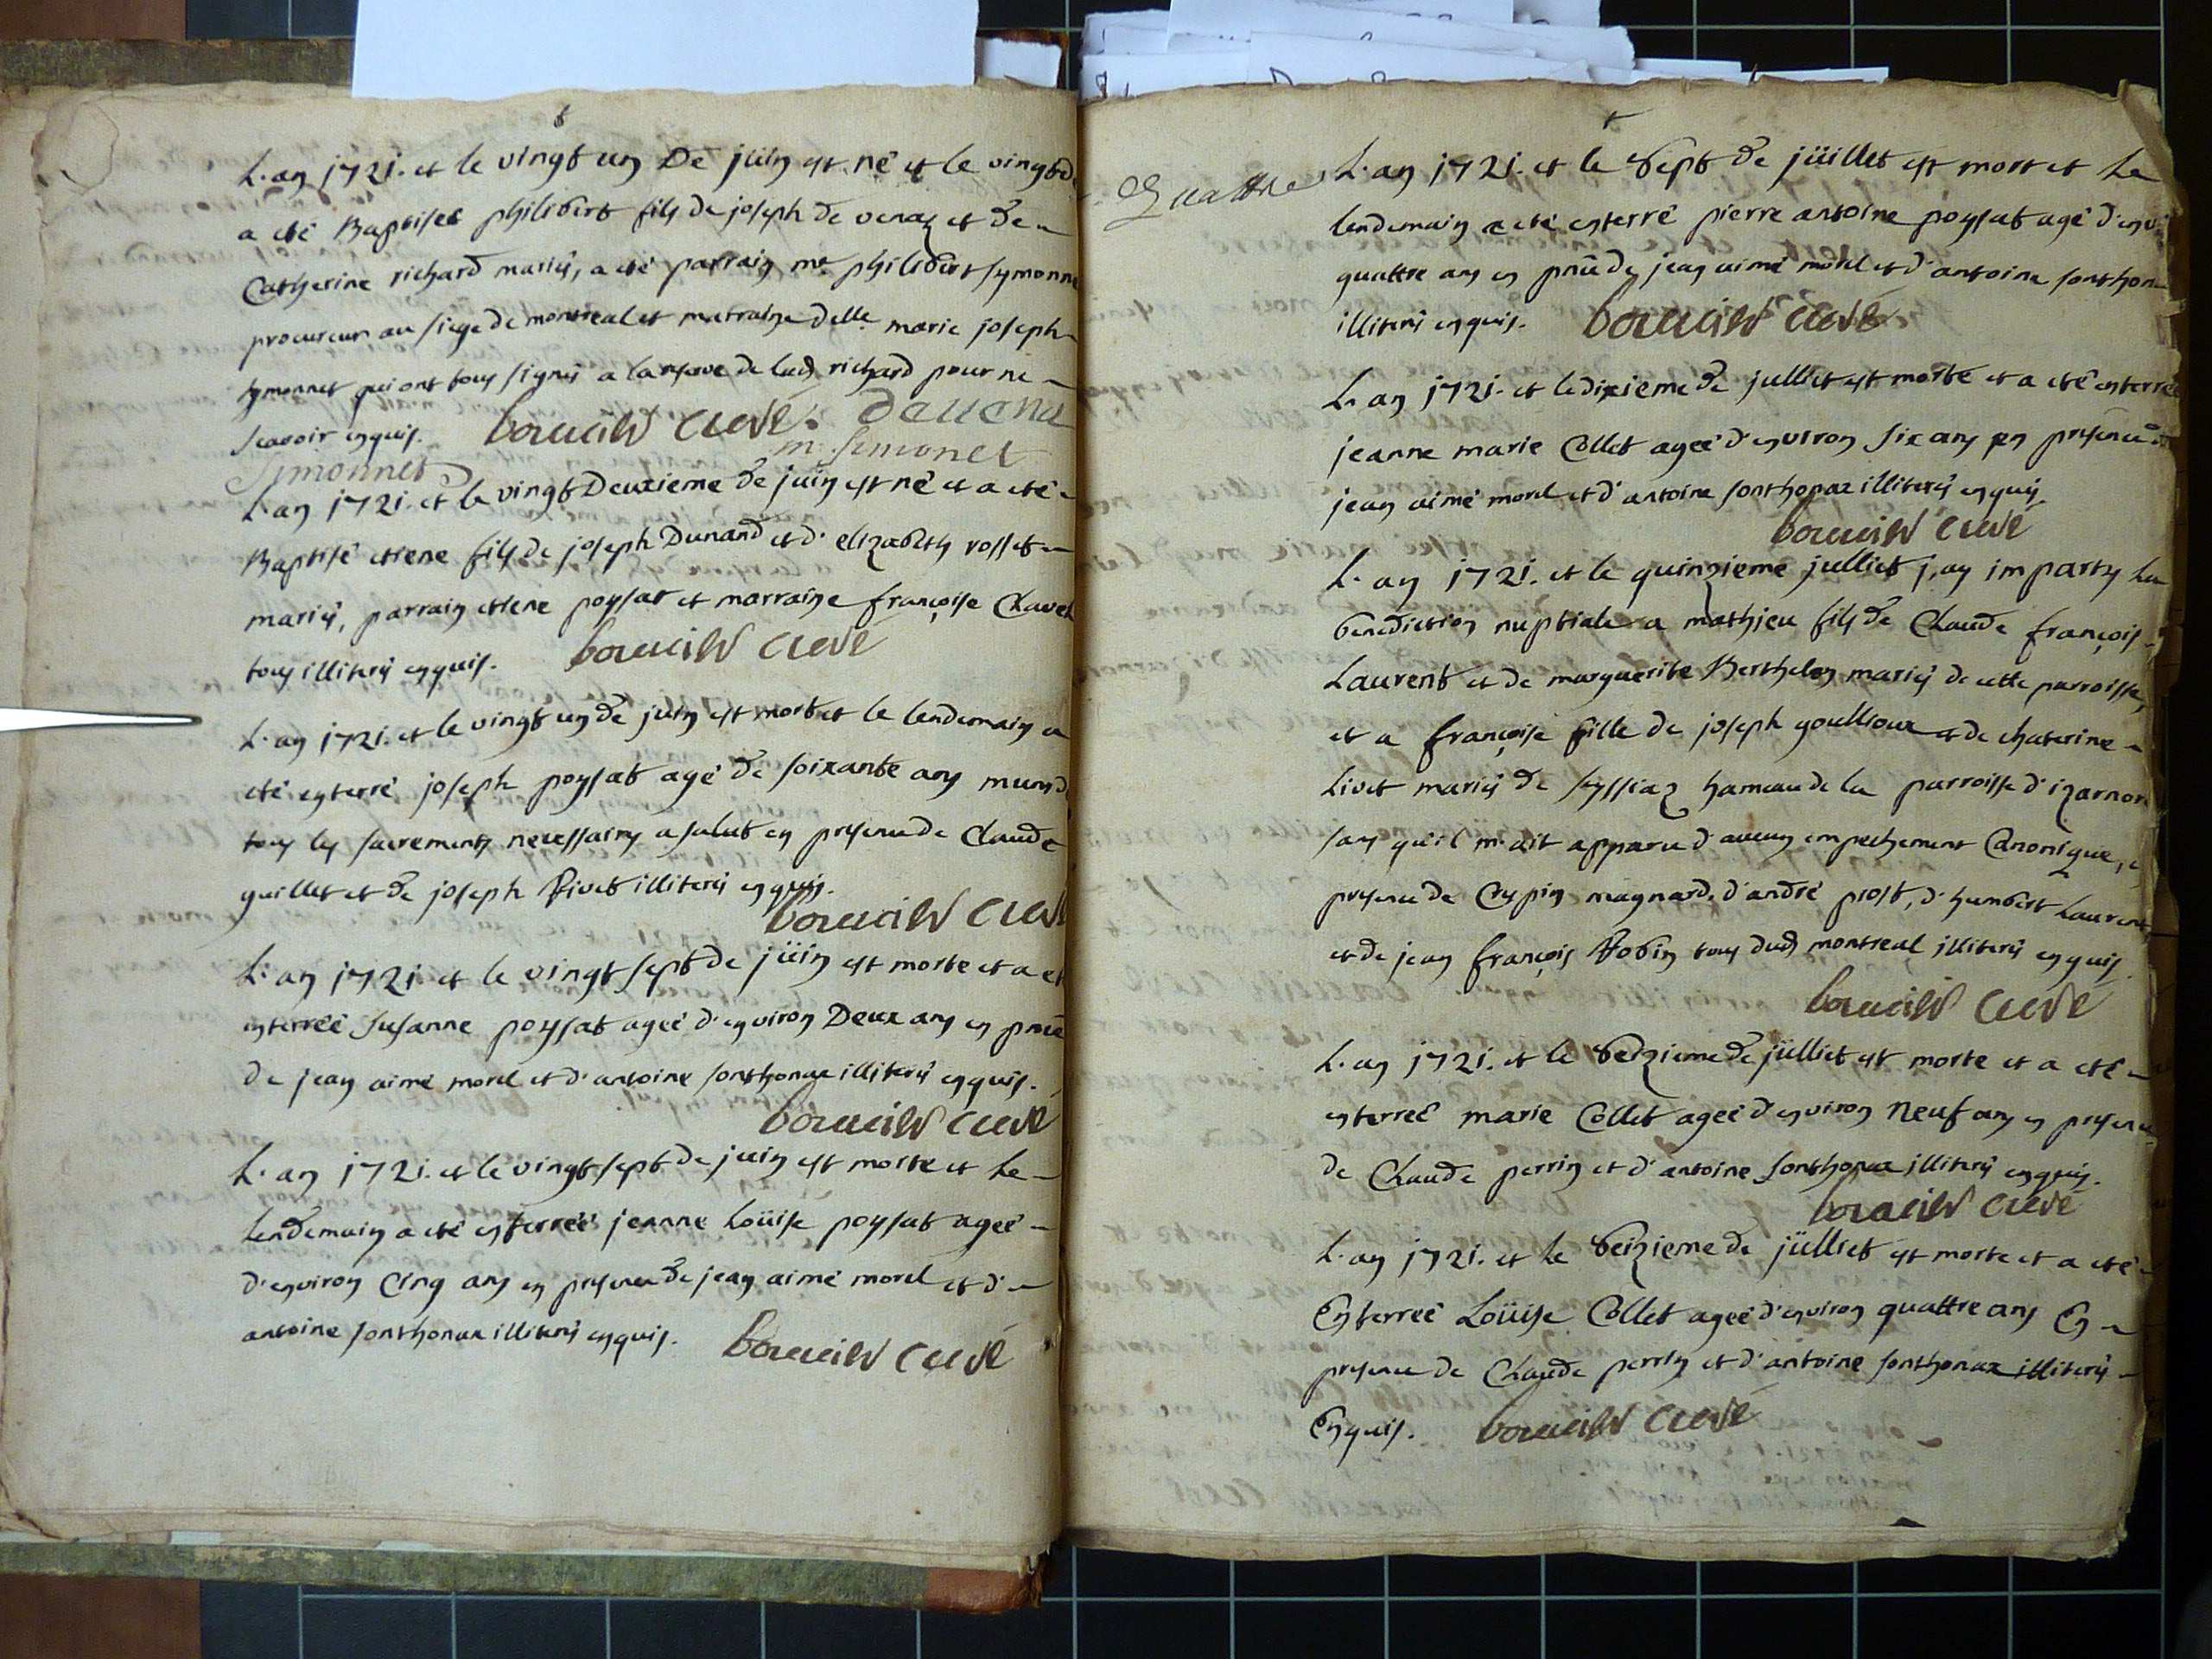 L'an 1721. et le vingt un De jüin est né et le vingt d
a eté Baptiset philibert fils de joseph de venaz et de
Catherine richard mariés, a eté parrain me philibert symonne
procureur au siege de montreal et marraine delle marie joseph
symonnet qui ont tous signés a la reserve de lad richard pour ne
scavoir enquis. curé. devena
Simonnet m. simonet
L'an 1721. et le vingt Deuxieme de juin est né et a eté
Baptisé etiene fils de joseph Dunand et d' elizabeth rosset
mariés, parrain etiene poysat et marraine françoise Chavet
tous illiterés enquis. curé
L'an 1721. et le vingt un de juin est mort et le lendemain a
eté enterré joseph poysat agé de soixante ans muny d
tous les sacrements necessaires a salut en presence de Claude
guillet et de joseph Rivet illiterés enquis.
curé
L'an 1721 et le vingt sept de jüin est morte et a et
enterreé Susanne poysat ageé d'environ Deux ans en pnce
de jean aimé morel et d'antoine sonthonax illiterés enquis.
curé
L'an 1721. et le vingt sept de juin est morte et Le
Lendemain a eté enterreé jeanne Loüise poysat ageé
d'environ Cinq ans en presence de jean aimé morel et d'
antoine sonthonax illiterés enquis. curé
Quattre
L'an 1721. et le Sept de jüillet est mort et Le
lendemain a eté enterré pierre antoine poysat agé d'envi
quattre ans en pnce de jean aimé morel et d'antoine sonthon
illiterés enquis. curé
L'an 1721. et le dixieme de julliet est morte et a eté enterreé
jeanne marie Collet ageé d'environ six ans en presence
jean aimé morel et d'antoine sonthonax illiterés enquis.
curé
L'an 1721. et le quinzieme julliet j'ay imparty La
benediction nuptiale a mathieu fils de Claude françois
Laurent et de marguerite Berthelon mariés de cette parroisse,
et a françoise fille de joseph goullioux et de chaterine
Livet mariés de seyssiaz hameau de La parroisse d'izarnor
sans qu'il m'ait apparu d'aucun empechement Canonique, e
presence de Crepin magnard, d'andré prost, d'humbert Laurent,
et de jean françois Robin tous dud montreal illiterés enquis.
curé
L'an 1721. et le Seizieme de jülliet est morte et a eté
enterreé marie Collet ageé d'environ Neuf ans en presence
de Claude perrin et d'antoine sonthonax illiterés enquis.
curé
L'an 1721. et le Seizieme de jülliet est morte et a eté
Enterreé Loüise Collet ageé d'environ quattre ans En
presence de Claude perrin et d'antoine sonthonax illiterés
Enquis. curé